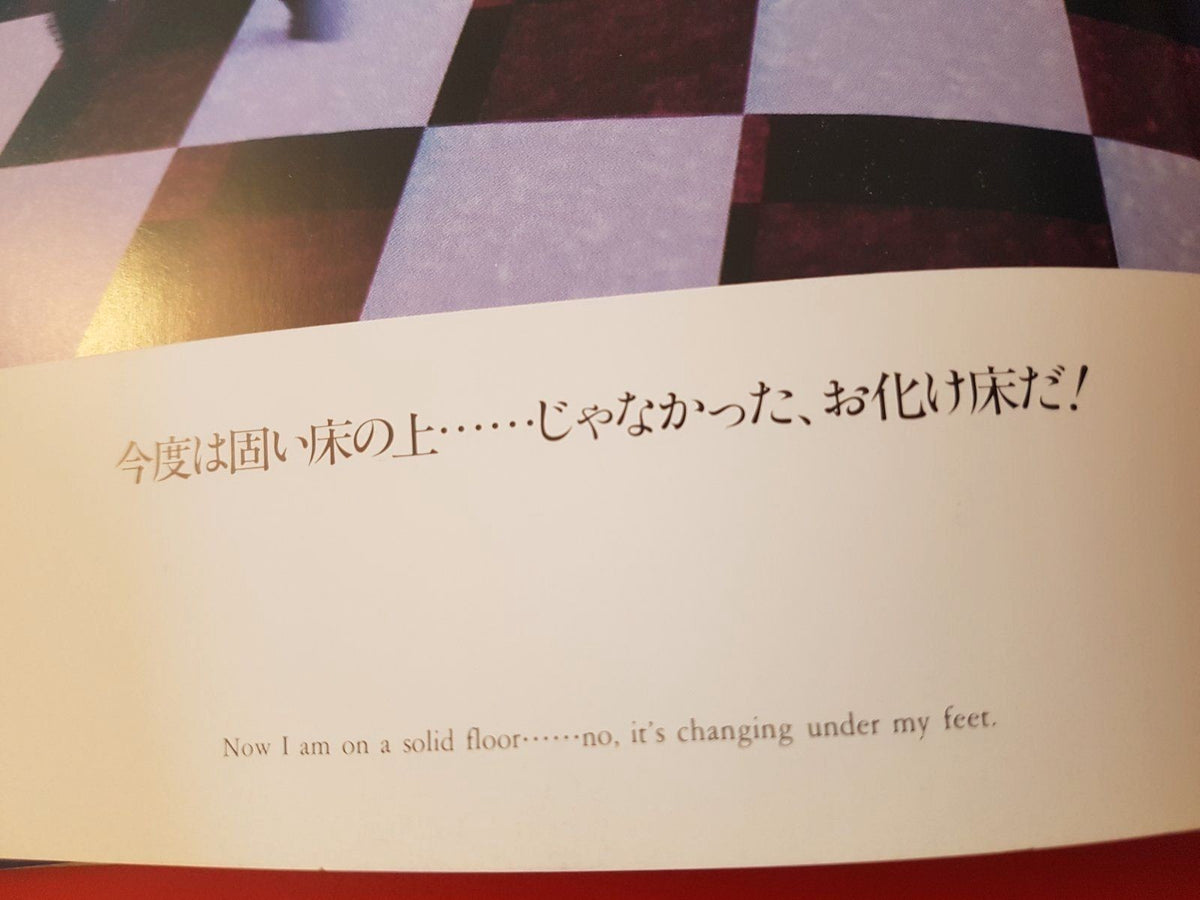 今度は固い床の上……じゃなかった、お化け床だ!
Now I am on a solid floor……no, it's changing under my feet.